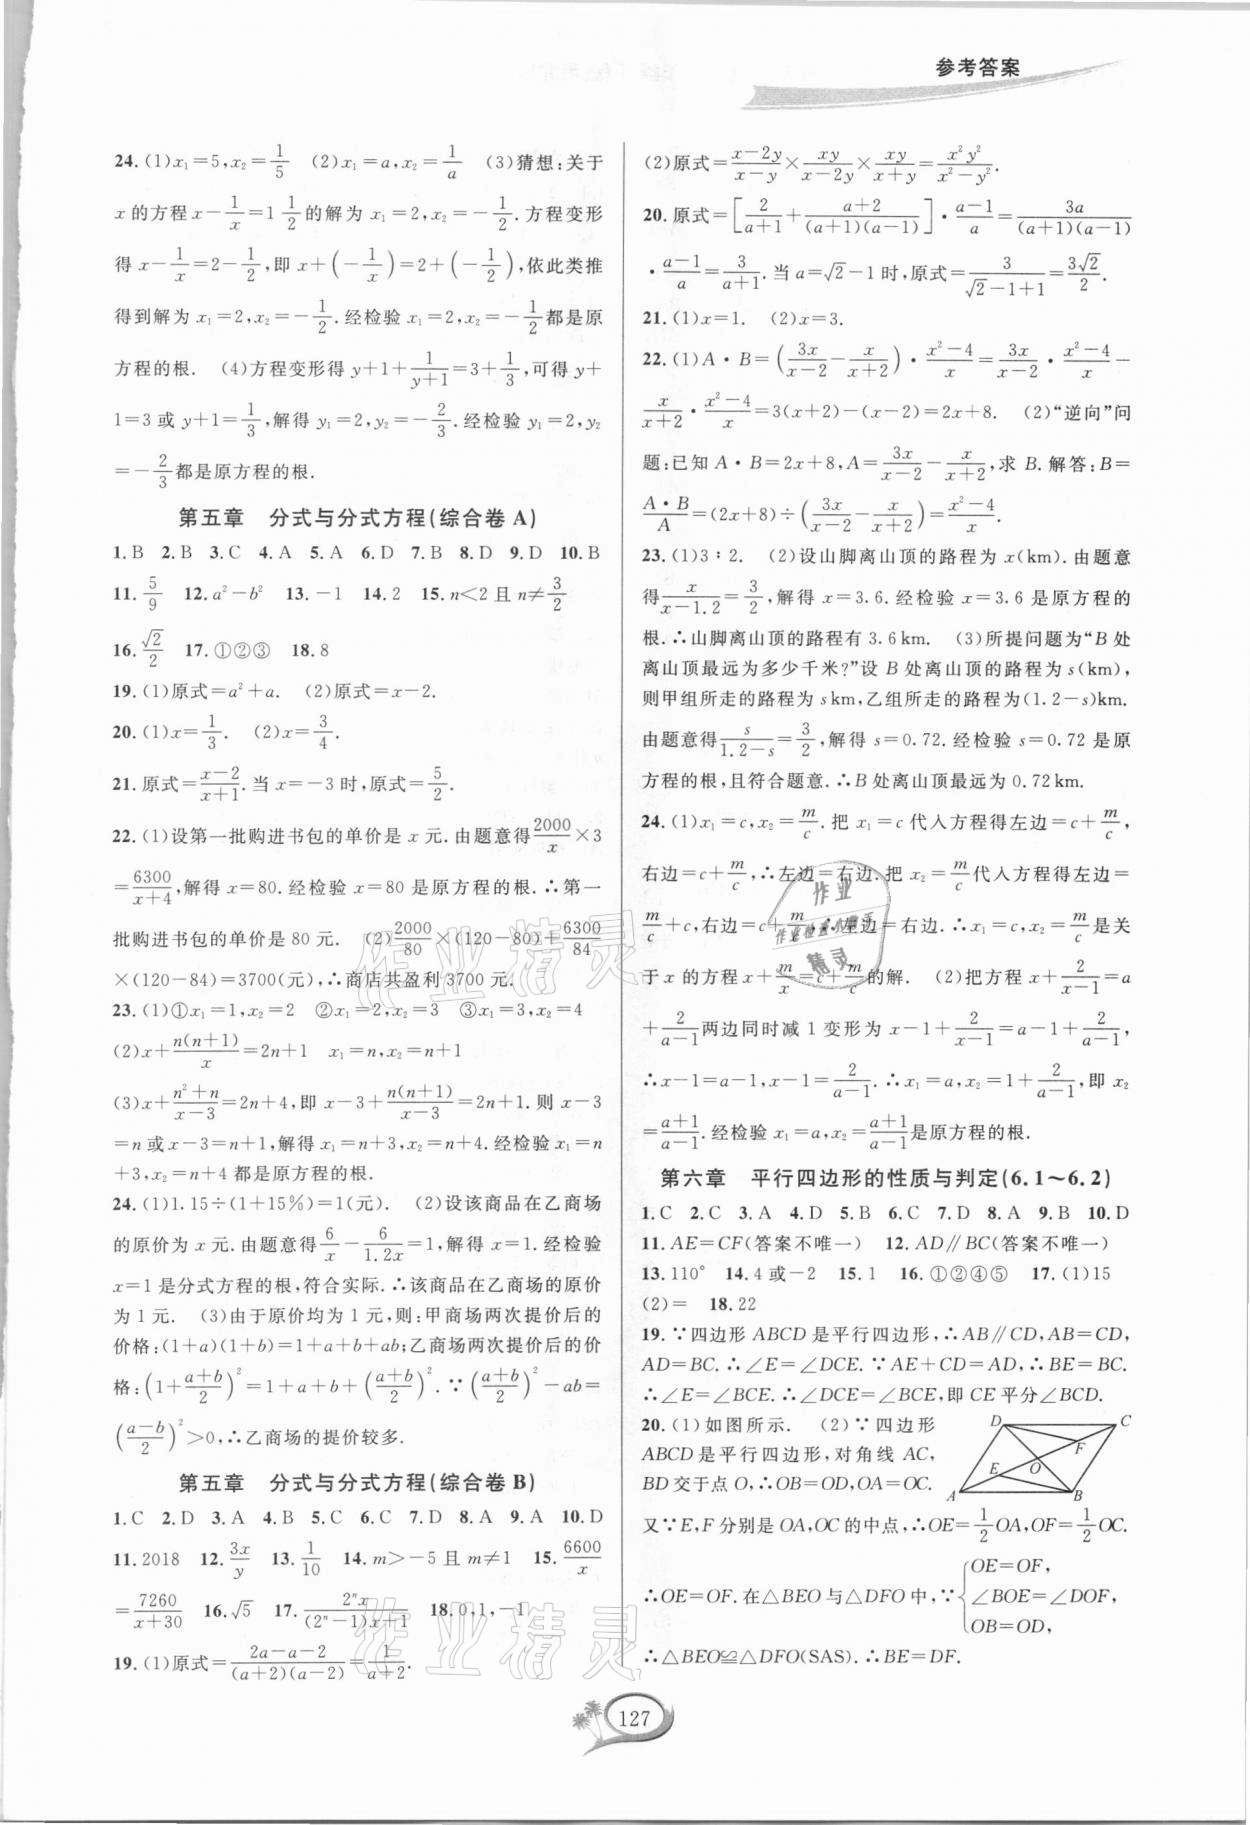 参考答案
24.(1)x₁=5,x₂=1/5　(2)x₁=a,x₂=1/a　(3)猜想:关于
x的方程x-1/x=1 1/2的解为x₁=2,x₂=-1/2.方程变形
得x-1/x=2-1/2,即x+(-1/x)=2+(-1/2),依此类推
得到解为x₁=2,x₂=-1/2.经检验x₁=2,x₂=-1/2都是原
方程的根.　(4)方程变形得y+1+1/(y+1)=3+1/3,可得y+
1=3或y+1=1/3,解得y₁=2,y₂=-2/3.经检验y₁=2,y₂
=-2/3都是原方程的根.
第五章　分式与分式方程(综合卷A)
1.B 2.B 3.C 4.A 5.A 6.D 7.B 8.D 9.D 10.B
11.5/9　12.a²-b²　13.-1　14.2　15.n<2且n≠3/2
16.√2/2　17.①②③　18.8
19.(1)原式=a²+a.　(2)原式=x-2.
20.(1)x=1/3.　(2)x=3/4.
21.原式=(x-2)/(x+1).当x=-3时,原式=5/2.
22.(1)设第一批购进书包的单价是x元.由题意得2000/x×3
=6300/(x+4),解得x=80.经检验x=80是原方程的根.∴第一
批购进书包的单价是80元.　(2)2000/80×(120-80)+6300/84
×(120-84)=3700(元),∴商店共盈利3700元.
23.(1)①x₁=1,x₂=2　②x₁=2,x₂=3　③x₁=3,x₂=4
(2)x+n(n+1)/x=2n+1　x₁=n,x₂=n+1
(3)x+(n²+n)/(x-3)=2n+4,即x-3+n(n+1)/(x-3)=2n+1.则x-3
=n或x-3=n+1,解得x₁=n+3,x₂=n+4.经检验x₁=n
+3,x₂=n+4都是原方程的根.
24.(1)1.15÷(1+15%)=1(元).　(2)设该商品在乙商场
的原价为x元.由题意得6/x-6/1.2x=1,解得x=1.经检验
x=1是分式方程的根,符合实际.∴该商品在乙商场的原价
为1元.　(3)由于原价均为1元,则:甲商场两次提价后的
价格:(1+a)(1+b)=1+a+b+ab;乙商场两次提价后的价
格:(1+(a+b)/2)²=1+a+b+((a+b)/2)².∵((a+b)/2)²-ab=
((a-b)/2)²>0,∴乙商场的提价较多.
第五章　分式与分式方程(综合卷B)
1.C 2.D 3.A 4.B 5.C 6.C 7.D 8.A 9.A 10.D
11.2018　12.3x/y　13.1/10　14.m>-5且m≠1　15.6600/x
=7260/(x+30)　16.√5　17.2ⁿx/((2ⁿ-1)x+1)　18.0,1,-1
19.(1)原式=(2a-a-2)/((a+2)(a-2))=1/(a+2).
(2)原式=(x-2y)/(x-y)×xy/(x-2y)×xy/(x+y)=x²y²/(x²-y²).
20.原式=[2/(a+1)+(a+2)/((a+1)(a-1))]·(a-1)/a=3a/((a+1)(a-1))
·(a-1)/a=3/(a+1).当a=√2-1时,原式=3/(√2-1+1)=3√2/2.
21.(1)x=1.　(2)x=3.
22.(1)A·B=(3x/(x-2)-x/(x+2))·(x²-4)/x=3x/(x-2)·(x²-4)/x-
x/(x+2)·(x²-4)/x=3(x+2)-(x-2)=2x+8.　(2)“逆向”问
题:已知A·B=2x+8,A=3x/(x-2)-x/(x+2),求B.解答:B=
A·B/A=(2x+8)÷(3x/(x-2)-x/(x+2))=(x²-4)/x.
23.(1)3∶2.　(2)设山脚离山顶的路程为x(km).由题意
得x/(x-1.2)=3/2,解得x=3.6.经检验x=3.6是原方程的
根.∴山脚离山顶的路程有3.6km.　(3)所提问题为“B处
离山顶最远为多少千米?”设B处离山顶的路程为s(km),
则甲组所走的路程为skm,乙组所走的路程为(1.2-s)km.
由题意得s/(1.2-s)=3/2,解得s=0.72.经检验s=0.72是原
方程的根,且符合题意.∴B处离山顶最远为0.72km.
24.(1)x₁=c,x₂=m/c.把x₁=c代入方程得左边=c+m/c,
右边=c+m/c,∴左边=右边.把x₂=m/c代入方程得左边=
m/c+c,右边=c+m/c,∴左边=右边.∴x₁=c,x₂=m/c是关
于x的方程x+m/x=c+m/c的解.　(2)把方程x+2/(x-1)=a
+2/(a-1)两边同时减1变形为x-1+2/(x-1)=a-1+2/(a-1),
∴x-1=a-1,x-1=2/(a-1).∴x₁=a,x₂=1+2/(a-1),即x₂
=(a+1)/(a-1).经检验x₁=a,x₂=(a+1)/(a-1)是原方程的根.
第六章　平行四边形的性质与判定(6.1~6.2)
1.C 2.C 3.A 4.D 5.B 6.C 7.D 8.A 9.B 10.D
11.AE=CF(答案不唯一)　12.AD∥BC(答案不唯一)
13.110°　14.4或-2　15.1　16.①②④⑤　17.(1)15
(2)=　18.22
19.∵四边形ABCD是平行四边形,∴AB∥CD,AB=CD,
AD=BC.∴∠E=∠DCE.∵AE+CD=AD,∴BE=BC.
∴∠E=∠BCE.∴∠DCE=∠BCE,即CE平分∠BCD.
20.(1)如图所示.　(2)∵四边形
ABCD是平行四边形,对角线AC,
BD交于点O,∴OB=OD,OA=OC.
D C F E O A B
又∵E,F分别是OA,OC的中点,∴OE=1/2OA,OF=1/2OC.
∴OE=OF.在△BEO与△DFO中,∵{OE=OF,
∠BOE=∠DOF,
OB=OD,
∴△BEO≌△DFO(SAS).∴BE=DF.
127
作业精灵
作业精灵
作业
精灵